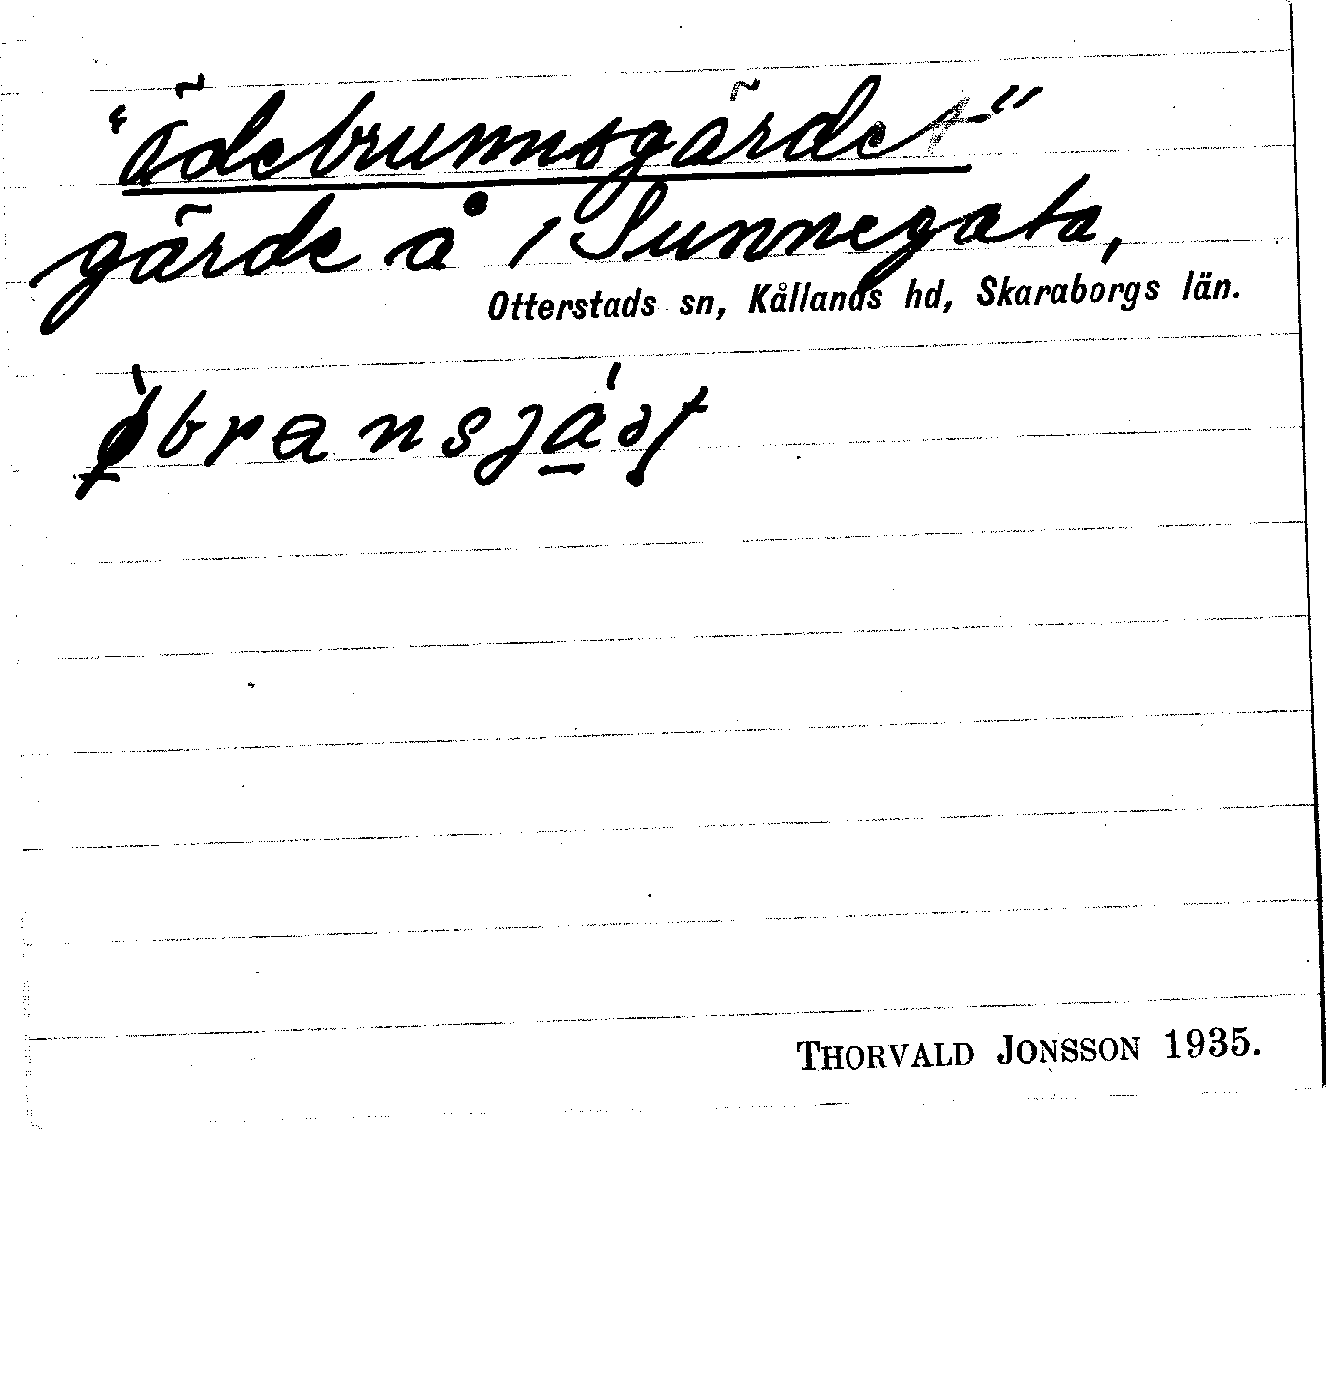 "ödebrunnsgärdet"
gärde å 1 Sunnegata,
Otterstads sn, Kållands hd, Skaraborgs län.
THORVALD JONSSON 1935.